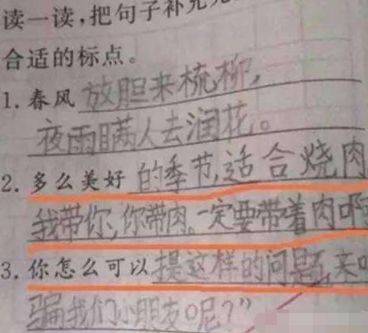 读一读，把句子补充
合适的标点。
1. 春风 放胆来梳柳，
夜雨瞒人去润花。
2. 多么美好 的季节，适合烧肉
我带你，你带肉。一定要带着肉啊
3. 你怎么可以 提这样的问题，来
骗我们小朋友呢？”